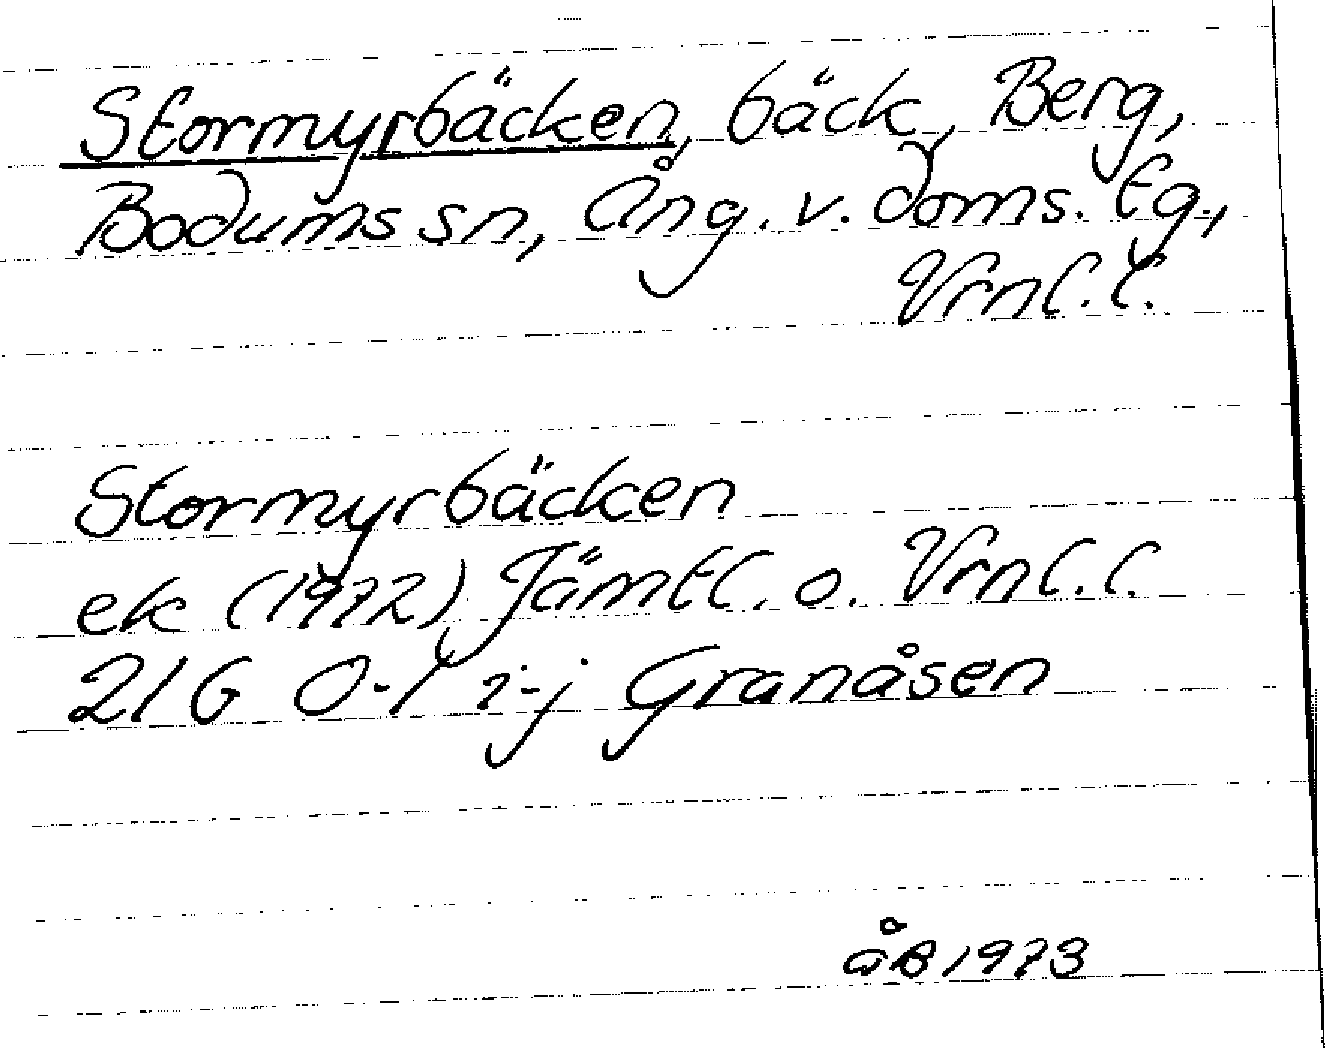 Stormyrbäcken, bäck, Berg,
Bodums sn, Ång. v. doms. tg.,
Vrnl. l.
Stormyrbäcken
ek (1972) Jämtl. o. Vrnl. l.
21G 0-1 i-j Granåsen
åB 1973